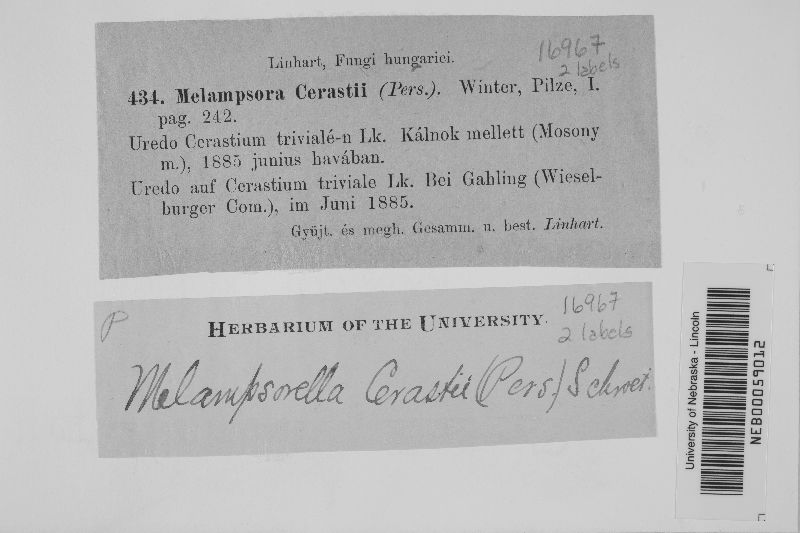 Linhart, Fungi hungarici.
16967
2 labels
434. Melampsora Cerastii (Pers.). Winter, Pilze, I.
pag. 242.
Uredo Cerastium trivialé-n Lk. Kálnok mellett (Mosony
m.), 1885 junius havában.
Uredo auf Cerastium triviale Lk. Bei Gahling (Wiesel-
burger Com.), im Juni 1885.
Gyüjt. és megh. Gesamm. u. best. Linhart.
P
HERBARIUM OF THE UNIVERSITY.
16967
2 labels
Melampsorella Cerastii (Pers) Schroet.
University of Nebraska - Lincoln
NEB00059012